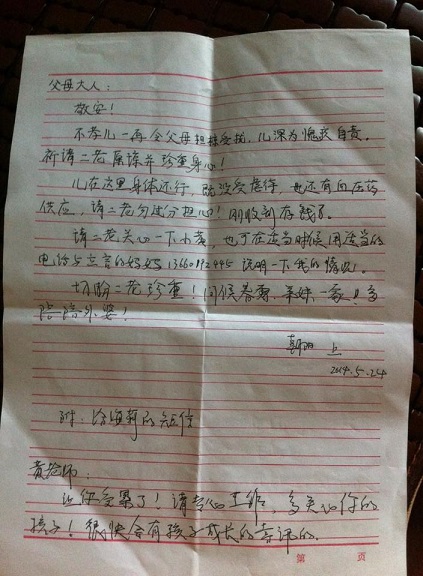 父母大人：
敬安！
不孝儿一再令父母担惊受扰，儿深为愧疚自责。
祈请二老原谅并珍重身心！
儿在这里身体还行，既没受虐待，也还有血压药
供应，请二老勿过分担心！刚收到存钱了。
请二老关心一下小
，也可在适当时候用适当的
电话与立言的妈妈13660192445说明一下我的情况。
切盼二老珍重！问候春雷、弟妹一家！多
陪陪外婆！
上
2014.5.24
附：给海
的短信
黄老师：
让你受累了！请专心工作，多关心你的
孩子！很快会有孩子成长的喜讯的。
第 页